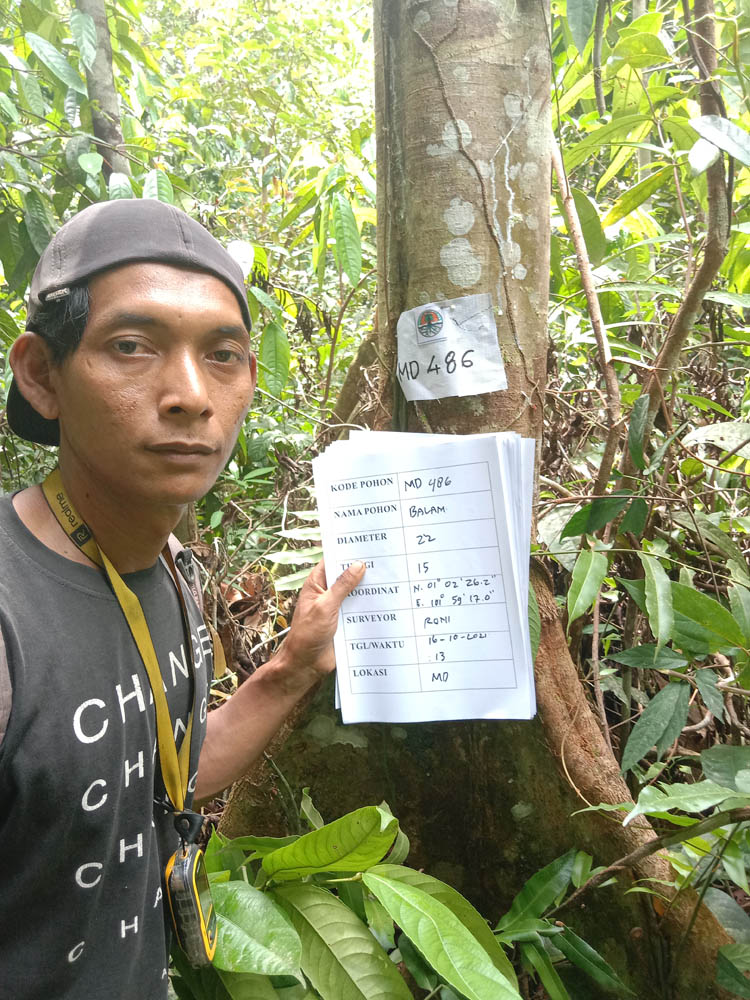 MD 486
KODE POHON MD 486
NAMA POHON BALAM
DIAMETER 22
15
KOORDINAT N. 01° 02' 26.2"
E. 101° 59' 17.0"
SURVEYOR RONI
TGL/WAKTU 16-10-2021
: 13
LOKASI MD
realme
CHANGE
CHA
CH
CHA
CHA
CHA